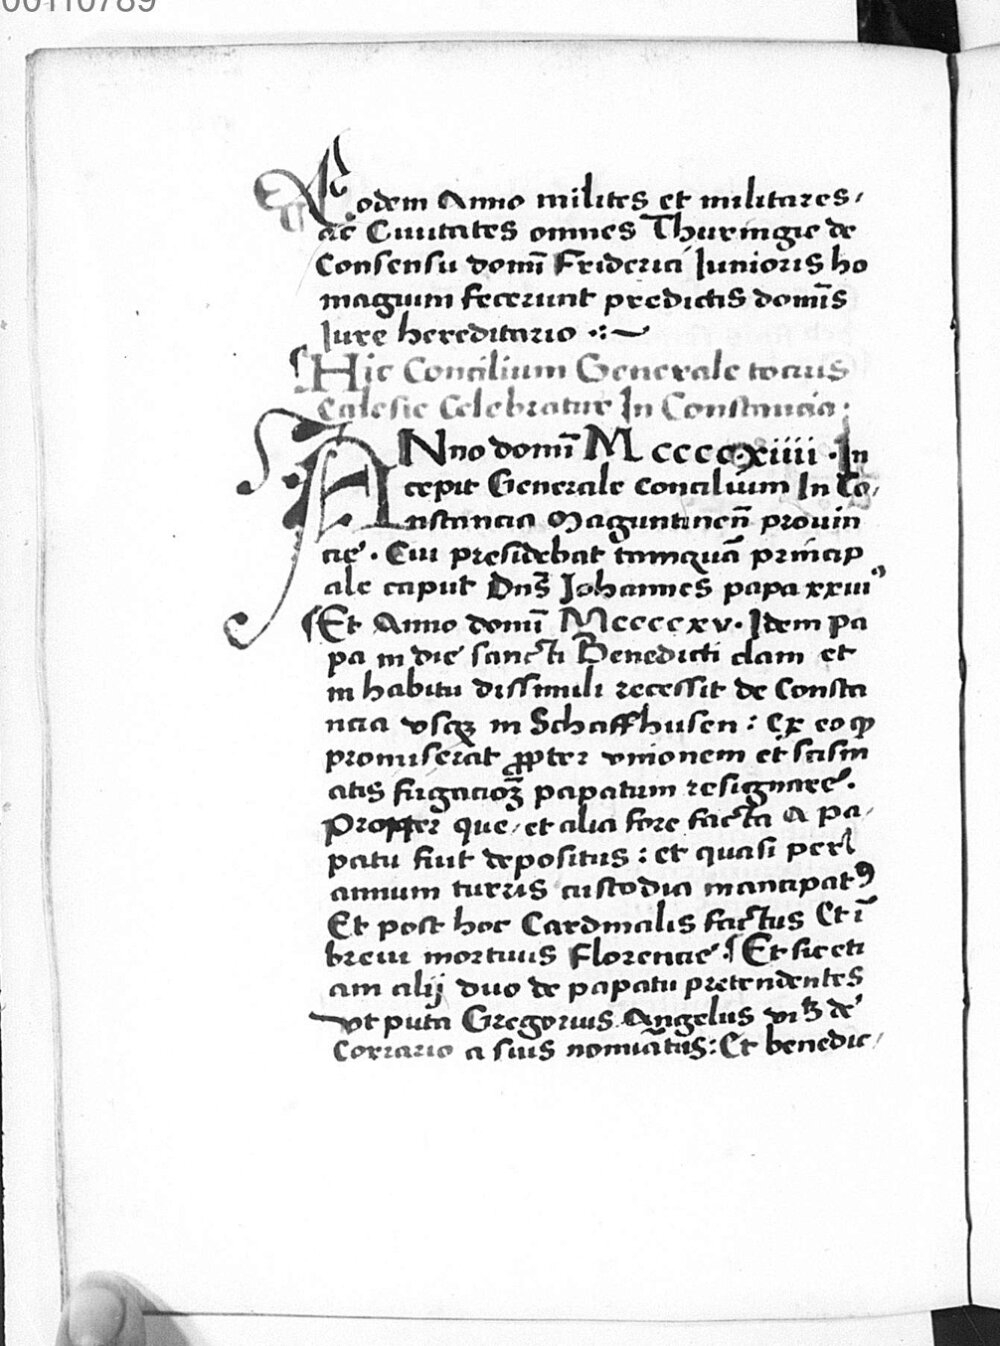 00110789
Eodem Anno milites et militares,
ac Ciuitates omnes Thuringie de
Consensu domī Friderici Iunioris ho
magium fecerunt predictis domīs
Iure hereditario
Hic Concilium Generale tocius
Ecclesie Celebratur In Constancia:
ANno domī M cccc xiiii . In
cepit Generale concilium In Co,
nstancia Maguntinen̄ prouin
cie . Cui presidebat tamquā princip
ale caput Dn̄s Johannes papa xxiii
Et Anno domī Mccccxv . Idem pa
pa in die sancti Benedicti clam et
in habitu dissimili recessit de Consta
ncia vsqꝫ in Schaffhusen : Ex eo ꝙ
promiserat ꝓpter vnionem et scism
atis fugacioꝫ papatum resignare .
Propter que, et alia fore facta a pa,
patu fuit depositus : et quasi per
annum turris custodia mancipatꝰ
Et post hoc Cardinalis factus Et ī
breui mortuus Florencie . Et sic eti
am alij duo de papatu pretendentes
vt puta Gregorius Angelus de
Corrario a suis nomīatus : Et benedic,